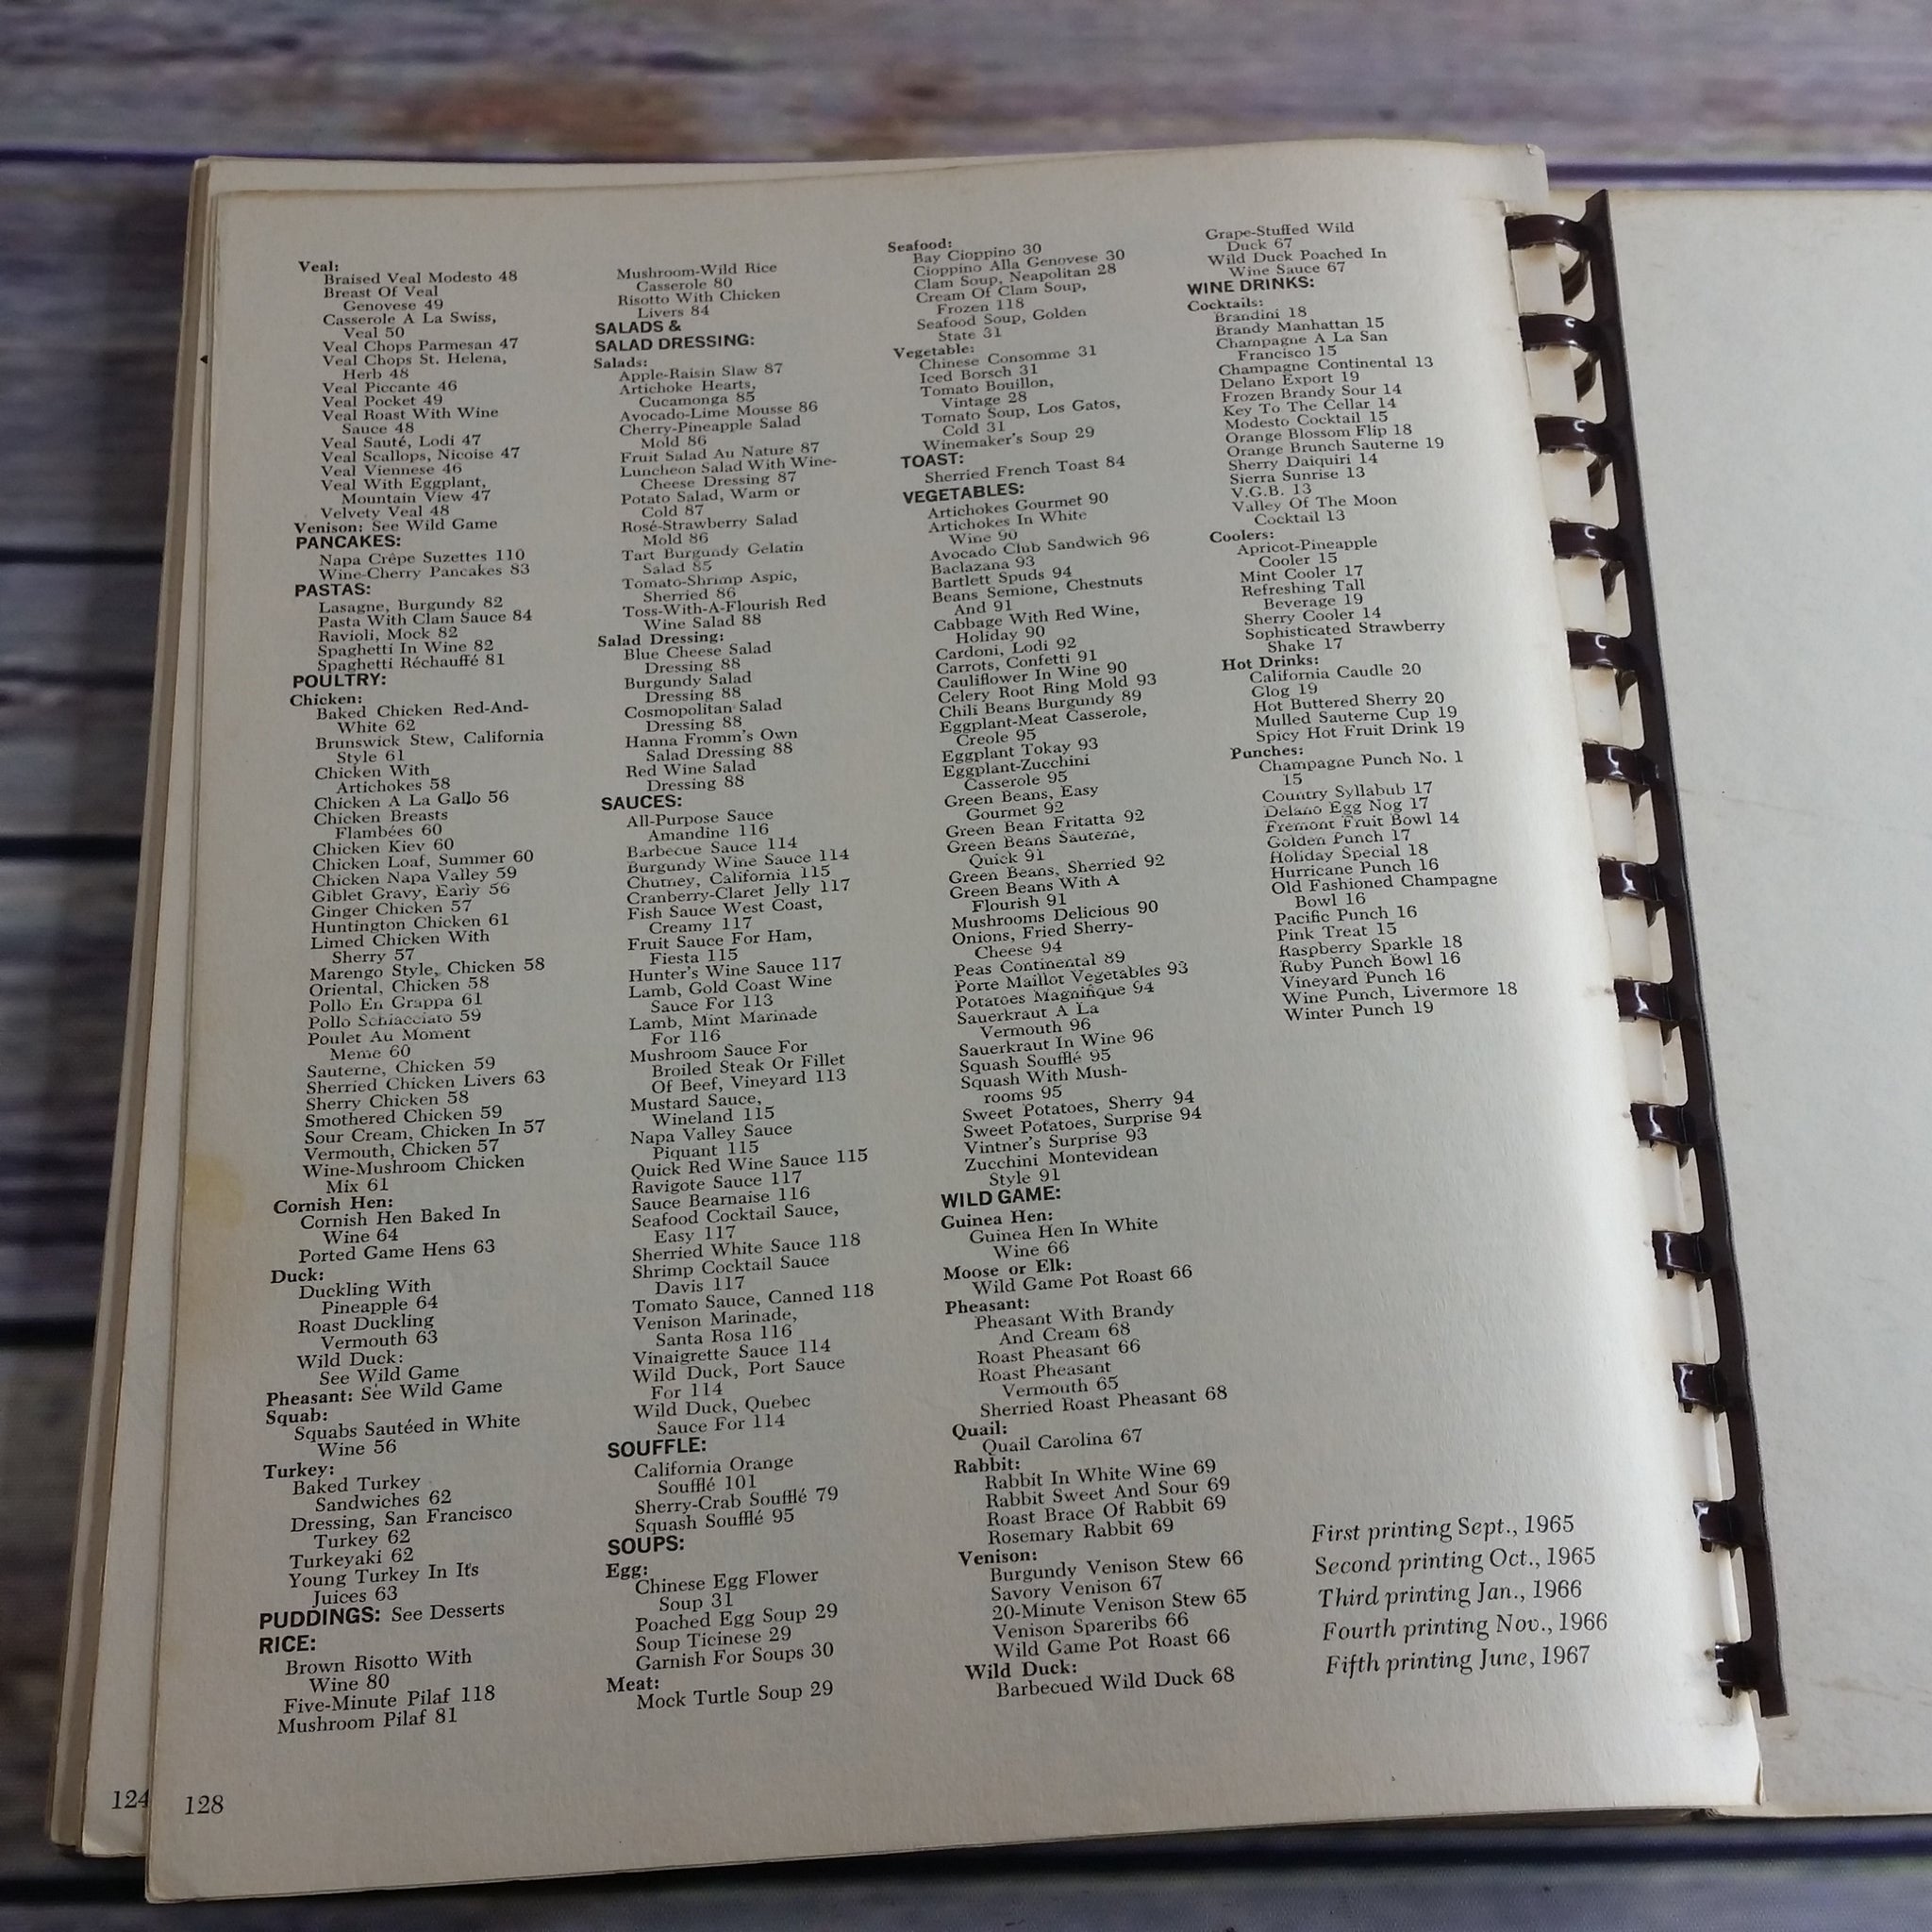 Veal:
Braised Veal Modesto 48
Breast Of Veal
Genovese 49
Casserole A La Swiss,
Veal 50
Veal Chops Parmesan 47
Veal Chops St. Helena,
Herb 48
Veal Piccante 46
Veal Pocket 49
Veal Roast With Wine
Sauce 48
Veal Sauté, Lodi 47
Veal Scallops, Nicoise 47
Veal Viennese 46
Veal With Eggplant,
Mountain View 47
Velvety Veal 48
Venison: See Wild Game
PANCAKES:
Napa Crêpe Suzettes 110
Wine-Cherry Pancakes 83
PASTAS:
Lasagne, Burgundy 82
Pasta With Clam Sauce 84
Ravioli, Mock 82
Spaghetti In Wine 82
Spaghetti Réchauffé 81
POULTRY:
Chicken:
Baked Chicken Red-And-
White 62
Brunswick Stew, California
Style 61
Chicken With
Artichokes 58
Chicken A La Gallo 56
Chicken Breasts
Flambées 60
Chicken Kiev 60
Chicken Loaf, Summer 60
Chicken Napa Valley 59
Giblet Gravy, Early 56
Ginger Chicken 57
Huntington Chicken 61
Limed Chicken With
Sherry 57
Marengo Style, Chicken 58
Oriental, Chicken 58
Pollo En Grappa 61
Pollo Schiacciato 59
Poulet Au Moment
Meme 60
Sauterne, Chicken 59
Sherried Chicken Livers 63
Sherry Chicken 58
Smothered Chicken 59
Sour Cream, Chicken In 57
Vermouth, Chicken 57
Wine-Mushroom Chicken
Mix 61
Cornish Hen:
Cornish Hen Baked In
Wine 64
Ported Game Hens 63
Duck:
Duckling With
Pineapple 64
Roast Duckling
Vermouth 63
Wild Duck:
See Wild Game
Pheasant: See Wild Game
Squab:
Squabs Sautéed in White
Wine 56
Turkey:
Baked Turkey
Sandwiches 62
Dressing, San Francisco
Turkey 62
Turkeyaki 62
Young Turkey In It's
Juices 63
PUDDINGS: See Desserts
RICE:
Brown Risotto With
Wine 80
Five-Minute Pilaf 118
Mushroom Pilaf 81
Mushroom-Wild Rice
Casserole 80
Risotto With Chicken
Livers 84
SALADS &
SALAD DRESSING:
Salads:
Apple-Raisin Slaw 87
Artichoke Hearts,
Cucamonga 85
Avocado-Lime Mousse 86
Cherry-Pineapple Salad
Mold 86
Fruit Salad Au Nature 87
Luncheon Salad With Wine-
Cheese Dressing 87
Potato Salad, Warm or
Cold 87
Rosé-Strawberry Salad
Mold 86
Tart Burgundy Gelatin
Salad 85
Tomato-Shrimp Aspic,
Sherried 86
Toss-With-A-Flourish Red
Wine Salad 88
Salad Dressing:
Blue Cheese Salad
Dressing 88
Burgundy Salad
Dressing 88
Cosmopolitan Salad
Dressing 88
Hanna Fromm's Own
Salad Dressing 88
Red Wine Salad
Dressing 88
SAUCES:
All-Purpose Sauce
Amandine 116
Barbecue Sauce 114
Burgundy Wine Sauce 114
Chutney, California 115
Cranberry-Claret Jelly 117
Fish Sauce West Coast,
Creamy 117
Fruit Sauce For Ham,
Fiesta 115
Hunter's Wine Sauce 117
Lamb, Gold Coast Wine
Sauce For 113
Lamb, Mint Marinade
For 116
Mushroom Sauce For
Broiled Steak Or Fillet
Of Beef, Vineyard 113
Mustard Sauce,
Wineland 115
Napa Valley Sauce
Piquant 115
Quick Red Wine Sauce 115
Ravigote Sauce 117
Sauce Bearnaise 116
Seafood Cocktail Sauce,
Easy 117
Sherried White Sauce 118
Shrimp Cocktail Sauce
Davis 117
Tomato Sauce, Canned 118
Venison Marinade,
Santa Rosa 116
Vinaigrette Sauce 114
Wild Duck, Port Sauce
For 114
Wild Duck, Quebec
Sauce For 114
SOUFFLE:
California Orange
Soufflé 101
Sherry-Crab Soufflé 79
Squash Soufflé 95
SOUPS:
Egg:
Chinese Egg Flower
Soup 31
Poached Egg Soup 29
Soup Ticinese 29
Garnish For Soups 30
Meat:
Mock Turtle Soup 29
Seafood:
Bay Cioppino 30
Cioppino Alla Genovese 30
Clam Soup, Neapolitan 28
Cream Of Clam Soup,
Frozen 118
Seafood Soup, Golden
State 31
Vegetable:
Chinese Consomme 31
Iced Borsch 31
Tomato Bouillon,
Vintage 28
Tomato Soup, Los Gatos,
Cold 31
Winemaker's Soup 29
TOAST:
Sherried French Toast 84
VEGETABLES:
Artichokes Gourmet 90
Artichokes In White
Wine 90
Avocado Club Sandwich 96
Baclazana 93
Bartlett Spuds 94
Beans Semione, Chestnuts
And 91
Cabbage With Red Wine,
Holiday 90
Cardoni, Lodi 92
Carrots, Confetti 91
Cauliflower In Wine 90
Celery Root Ring Mold 93
Chili Beans Burgundy 89
Eggplant-Meat Casserole,
Creole 95
Eggplant Tokay 93
Eggplant-Zucchini
Casserole 95
Green Beans, Easy
Gourmet 92
Green Bean Fritatta 92
Green Beans Sauterne,
Quick 91
Green Beans, Sherried 92
Green Beans With A
Flourish 91
Mushrooms Delicious 90
Onions, Fried Sherry-
Cheese 94
Peas Continental 89
Porte Maillot Vegetables 93
Potatoes Magnifique 94
Sauerkraut A La
Vermouth 96
Sauerkraut In Wine 96
Squash Soufflé 95
Squash With Mush-
rooms 95
Sweet Potatoes, Sherry 94
Sweet Potatoes, Surprise 94
Vintner's Surprise 93
Zucchini Montevidean
Style 91
WILD GAME:
Guinea Hen:
Guinea Hen In White
Wine 66
Moose or Elk:
Wild Game Pot Roast 66
Pheasant:
Pheasant With Brandy
And Cream 68
Roast Pheasant 66
Roast Pheasant
Vermouth 65
Sherried Roast Pheasant 68
Quail:
Quail Carolina 67
Rabbit:
Rabbit In White Wine 69
Rabbit Sweet And Sour 69
Roast Brace Of Rabbit 69
Rosemary Rabbit 69
Venison:
Burgundy Venison Stew 66
Savory Venison 67
20-Minute Venison Stew 65
Venison Spareribs 66
Wild Game Pot Roast 66
Wild Duck:
Barbecued Wild Duck 68
Grape-Stuffed Wild
Duck 67
Wild Duck Poached In
Wine Sauce 67
WINE DRINKS:
Cocktails:
Brandini 18
Brandy Manhattan 15
Champagne A La San
Francisco 15
Champagne Continental 13
Delano Export 19
Frozen Brandy Sour 14
Key To The Cellar 14
Modesto Cocktail 15
Orange Blossom Flip 18
Orange Brunch Sauterne 19
Sherry Daiquiri 14
Sierra Sunrise 13
V.G.B. 13
Valley Of The Moon
Cocktail 13
Coolers:
Apricot-Pineapple
Cooler 15
Mint Cooler 17
Refreshing Tall
Beverage 19
Sherry Cooler 14
Sophisticated Strawberry
Shake 17
Hot Drinks:
California Caudle 20
Glog 19
Hot Buttered Sherry 20
Mulled Sauterne Cup 19
Spicy Hot Fruit Drink 19
Punches:
Champagne Punch No. 1
15
Country Syllabub 17
Delano Egg Nog 17
Fremont Fruit Bowl 14
Golden Punch 17
Holiday Special 18
Hurricane Punch 16
Old Fashioned Champagne
Bowl 16
Pacific Punch 16
Pink Treat 15
Raspberry Sparkle 18
Ruby Punch Bowl 16
Vineyard Punch 16
Wine Punch, Livermore 18
Winter Punch 19
First printing Sept., 1965
Second printing Oct., 1965
Third printing Jan., 1966
Fourth printing Nov., 1966
Fifth printing June, 1967
124
128